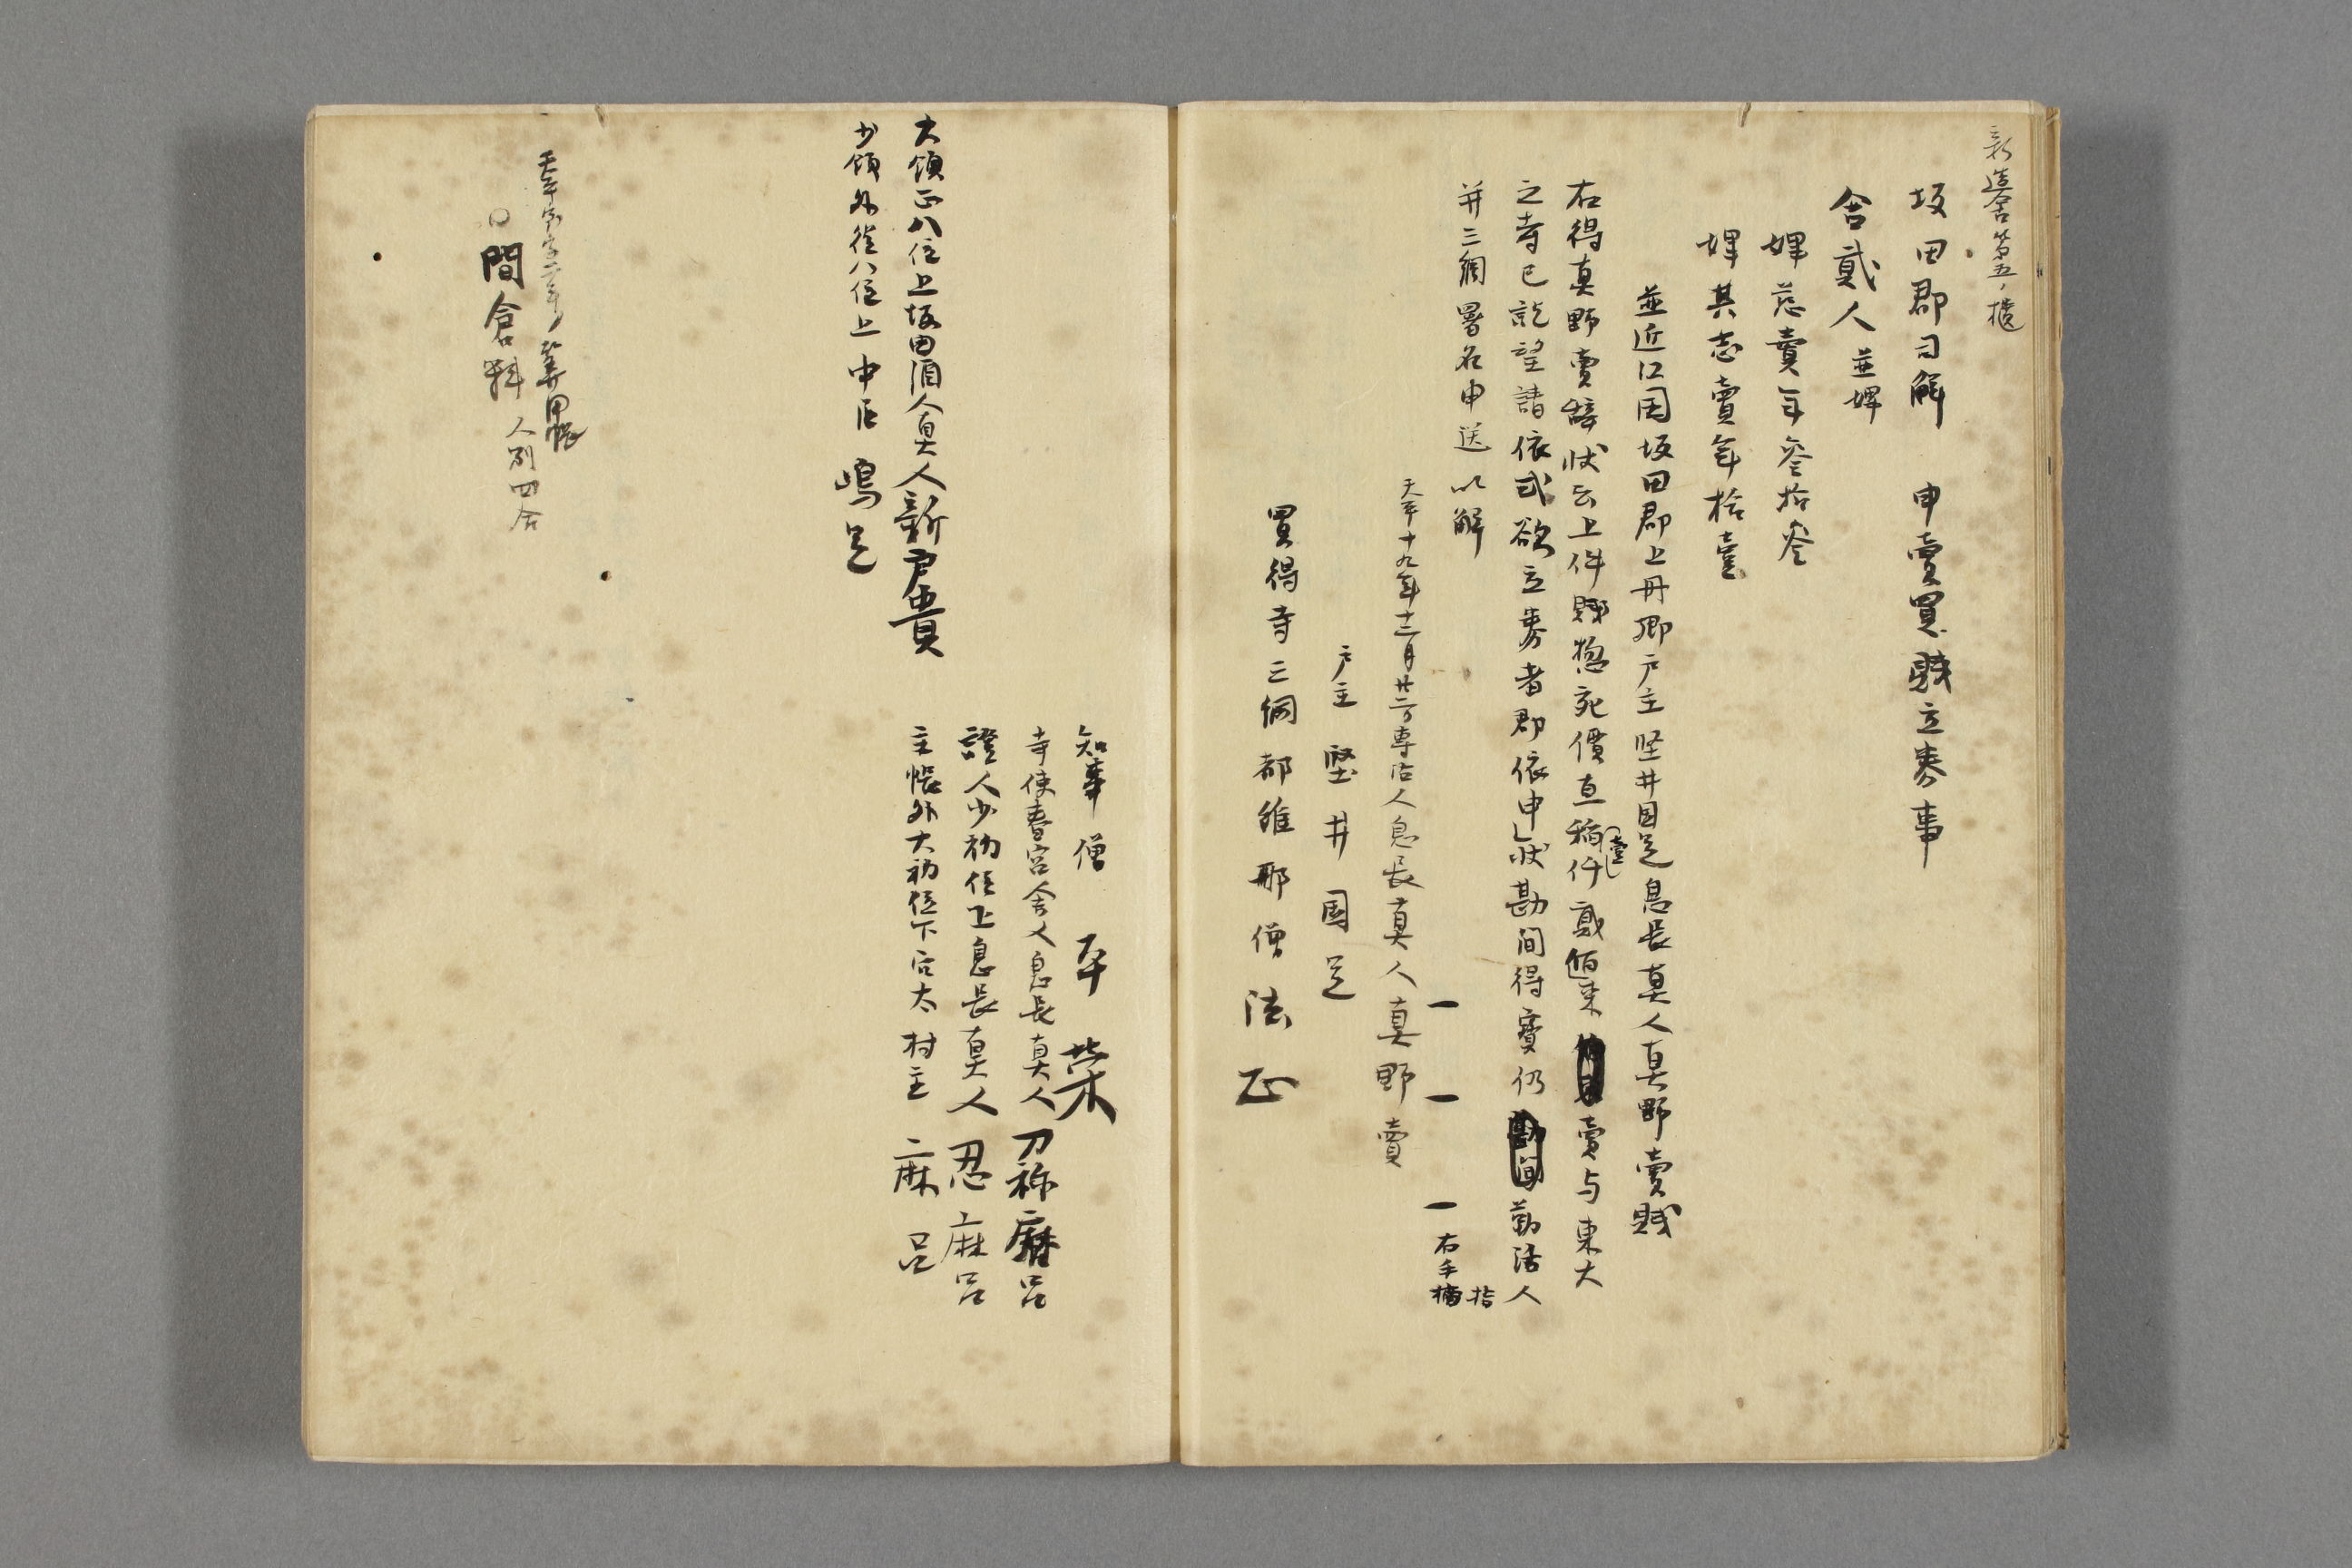 新造舎第五ノ櫃
坂田郡司解 申賣買賤立券事
合貳人 並婢
婢慈賣年參拾參
婢其志賣年拾壹
並近江国坂田郡上丹郷戸主堅井国足息長真人真野賣賤
右得真野賣辞状云上件賤惣充價直稲(壹)仟貳佰束 賣与東大
之寺已訖望請依式欲立券者郡依申状勘問得實仍勘問勒沽人
并三綱署名申送以解
一 一 一 右手指
天平十九年十二月廿二日専沽人息長真人真野賣
戸主堅井国足
買得寺三綱都維那僧法正
知事僧 平榮
寺使春宮舎人息長真人刀祢麿呂
證人少初位上息長真人忍麻呂
主帳外大初位下穴太村主麻呂
大領正八位上坂田酒人真人新良貴
少領外従八位上中臣嶋足
天平宝字二年 帳
間倉料 人別四合